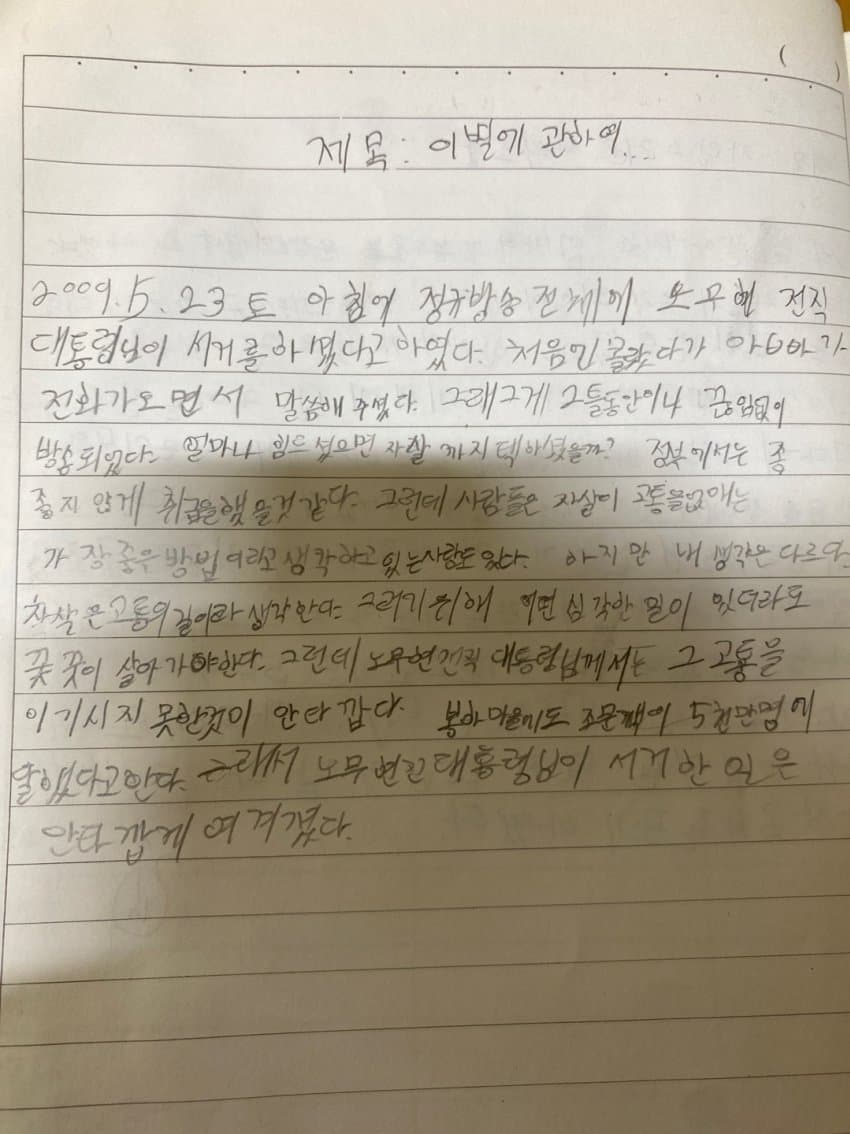 제목: 이별에 관하여...
2009.5.23 토 아침에 정규방송전체에 노무현 전직
대통령님이 서거를하셨다고 하였다. 처음엔 몰랐다가 아빠가
전화가오면서 말씀해 주셨다. 그래그게 2틀동안이나 끊임없이
방송되었다. 얼마나 힘드셨으면 자살까지 택하셨을까? 정부에서는 좋
좋지 않게 취급을했을것 같다. 그런데 사람들은 자살이 고통을없애는
가장 좋은 방법이라고 생각하고 있는사람도 있다. 하지만 내 생각은 다르다.
자살은 고통의 길이라 생각한다. 그러기위해 어떤 심각한 일이 있더라도
꿋꿋이 살아가야한다. 그런데 노무현전직 대통령님께서는 그 고통을
이기시지 못한것이 안타깝다. 봉하마을에도 조문객이 5천만명에
달했다고한다. 그래서 노무현전대통령님이 서거한 일은
안타깝게 여겨졌다.